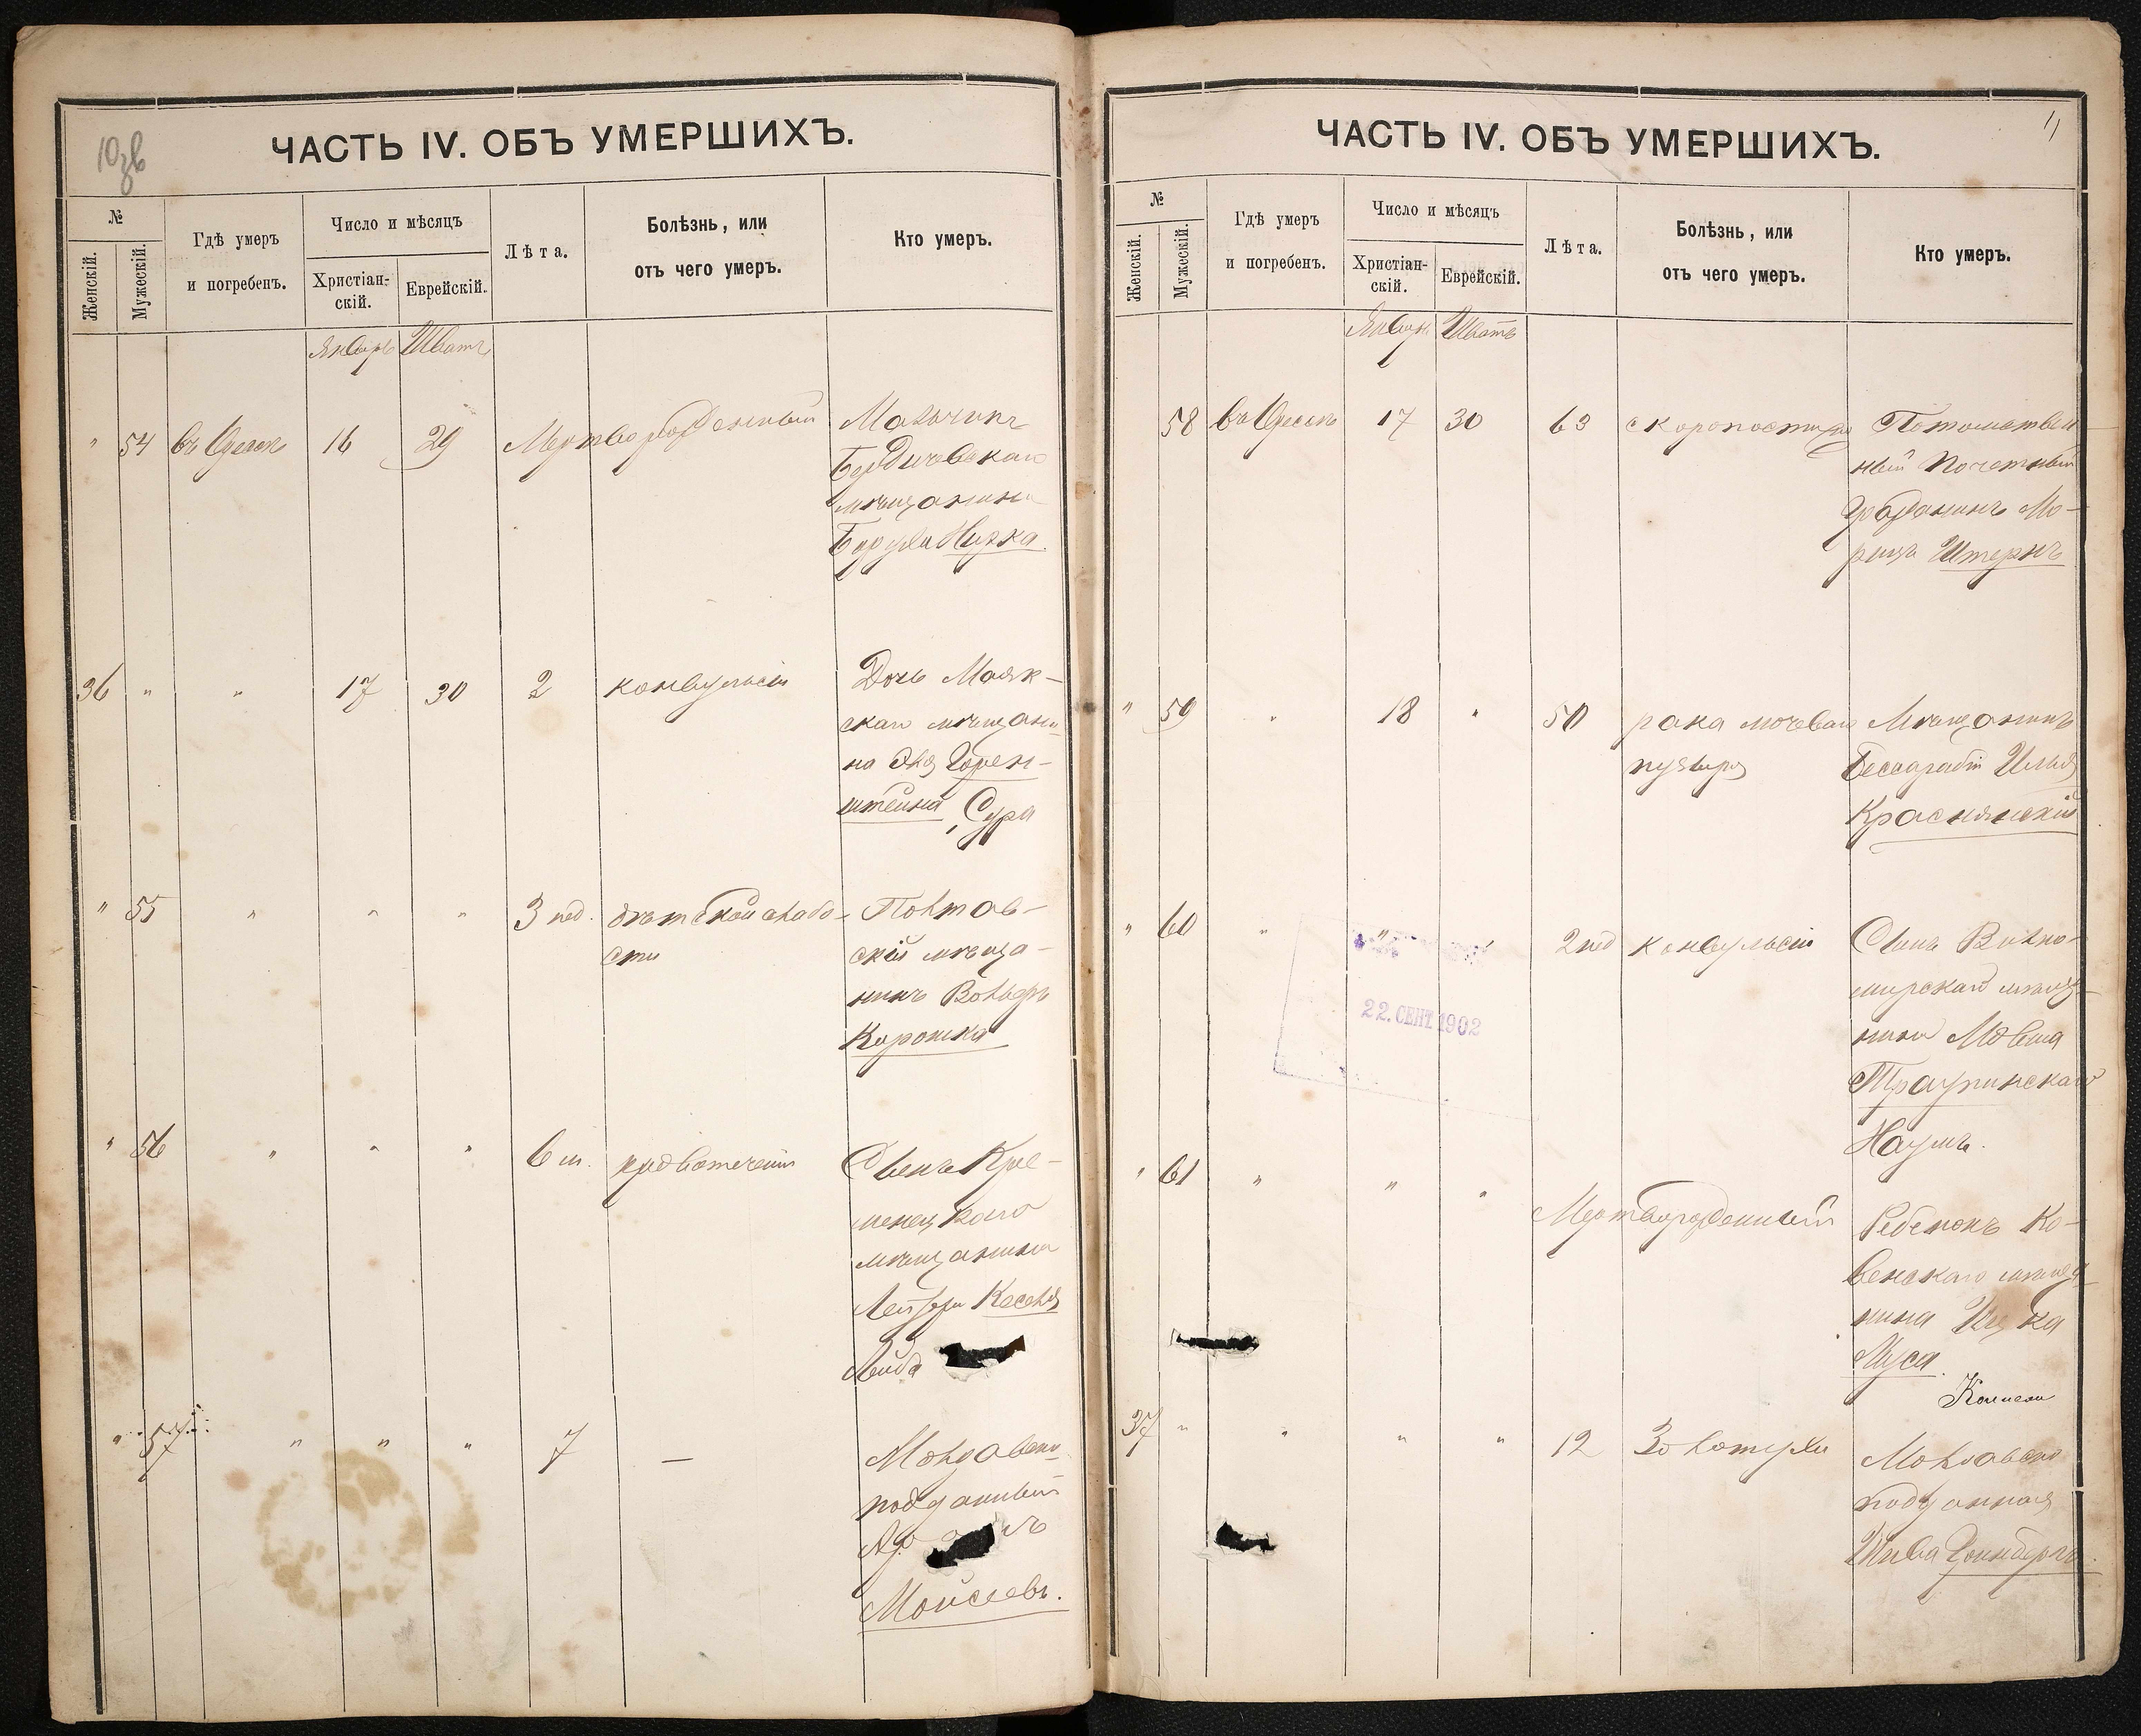 10 зв
ЧАСТЬ IV. ОБЪ УМЕРШИХЪ.
№
Женскій.
Мужескій.
Гдѣ умеръ
и погребенъ.
Число и мѣсяцъ
Христіан-
скій.
Еврейскій.
Лѣта.
Болѣзнь, или
отъ чего умеръ.
Кто умеръ.
Январь Шватъ
" 54 въ Одессѣ 16 29 Мертворожденный Мальчикъ
Бердичевскаго
мѣщанина
Боруха
36 " " 17 30 2 конвульсіи Дочь Маяк-
скаго мѣщани-
на Горен-
штейна, Сура
" 55 " " " 3 нед. дѣтской слабо- Полтав-
сти скій мѣща-
нинъ Вольфъ
Корошка
" 56 " " " 6 м. кровотеченія Сынъ Кре-
менецкаго
мѣщанина
Лейзера
Лейба
" 57 " " " 7 — Молдавск.
подданный
Моисеевъ.
11
ЧАСТЬ IV. ОБЪ УМЕРШИХЪ.
№
Женскій.
Мужескій.
Гдѣ умеръ
и погребенъ.
Число и мѣсяцъ
Христіан-
скій.
Еврейскій.
Лѣта.
Болѣзнь, или
отъ чего умеръ.
Кто умеръ.
Январь Шватъ
58 въ Одессѣ 17 30 63 скоропостижно Потомствен-
ный Почетный
Гражданинъ Мо-
рицъ Штернъ
" 59 " 18 " 50 рака мочеваго Мѣщанинъ
пузыря Бессарабіи Илья
Краснянскій
" 60 " " " 2 нед конвульсіи Сынъ Вилко-
мирскаго мѣща-
нина Мовша
Наумъ.
22. СЕНТ. 1902
" 61 " " "
Мертворожденный Ребенокъ Ко-
венскаго мѣща-
нина Ицка
Муса
37 " " " " 12 Золотухи Молдавско
подданная
Шива Гринбергъ.